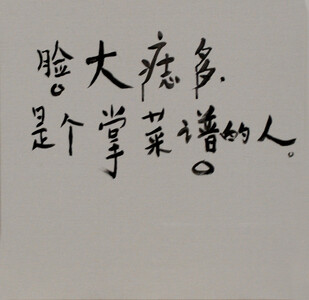 脸大痣多.
是个掌菜谱的人。